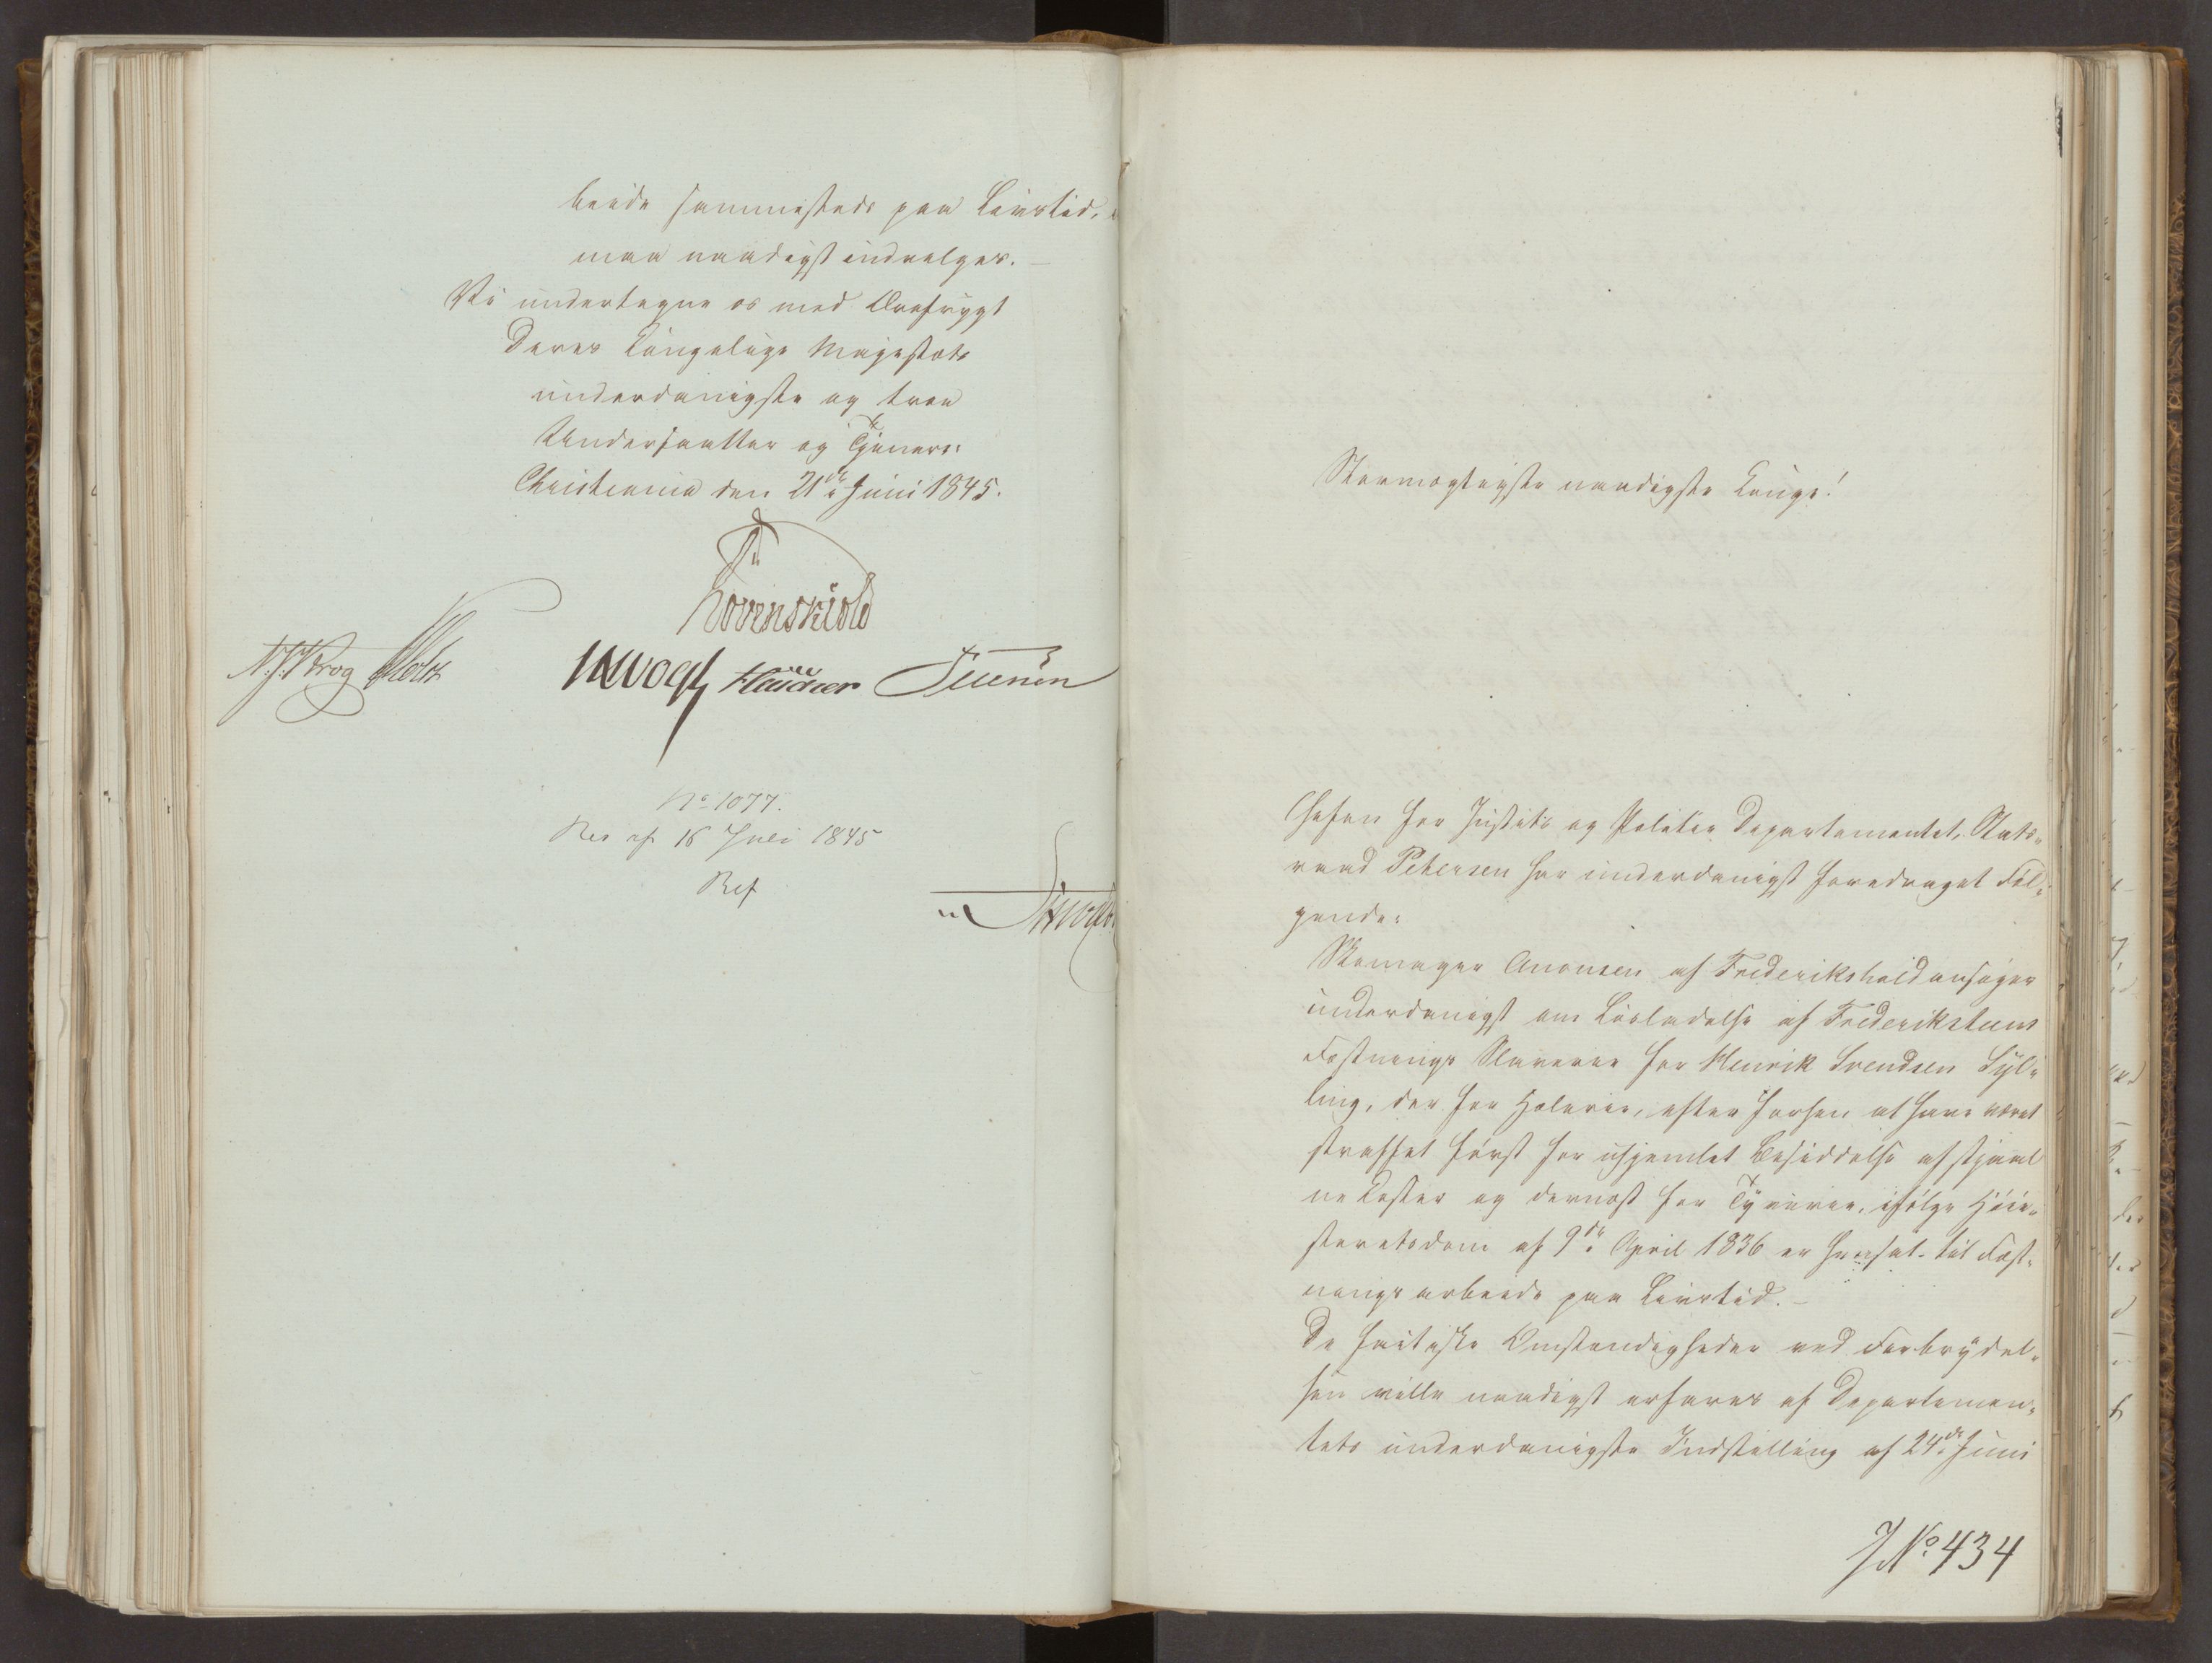 beide sammesteds paa Livstid,
maa naadigst indvilges. —
Vi undertegne os med Ærefrygt
Deres Kongelige Majestæts
underdanigste og troe
Undersaatter og Tjenere:
Christiania den 21de Juni 1845.
Løvenskiold
N. J. Krog Holst JHVogt
No 1077.
Res af 16 Juli 1845
Ref
Stormægtigste naadigste Konge!
Chefen for Justits og Politie Departementet, Stats-
raad Petersen har underdanigst foredraget Føl-
gende:
Skomager Aronsen af Frederikshald ansøger
underdanigst om Løsladelse af Frederikstens
Fæstnings Slaverie for Henrik Svendsen Syl-
ling, der for Hæleri, efter forhen at have været
straffet først for uhjemlet Besiddelse af stjaal
ne Koster og dernæst for Tyverie, ifølge Høie-
steretsdom af 9de April 1836 er hensat til Fæst-
nings arbeide paa Livstid. —
De factiske Omstændigheder ved Forbrydel-
sen ville naadigst erfares af Departemen-
tets underdanigste Indstilling af 24de Juni
J No. 434